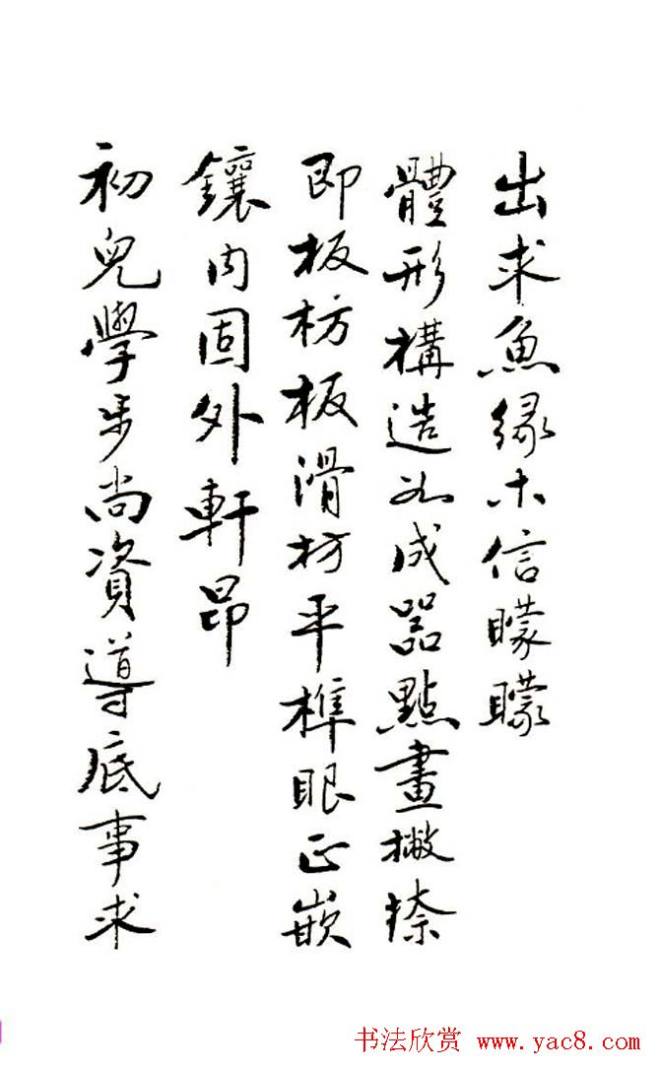 出求魚緣木信矇矇
體形構造如成器點畫撇捺
即板枋板滑枋平榫眼正嵌
鑲内固外軒昂
初兒學步尚資導底事求
书法欣赏 www.yac8.com